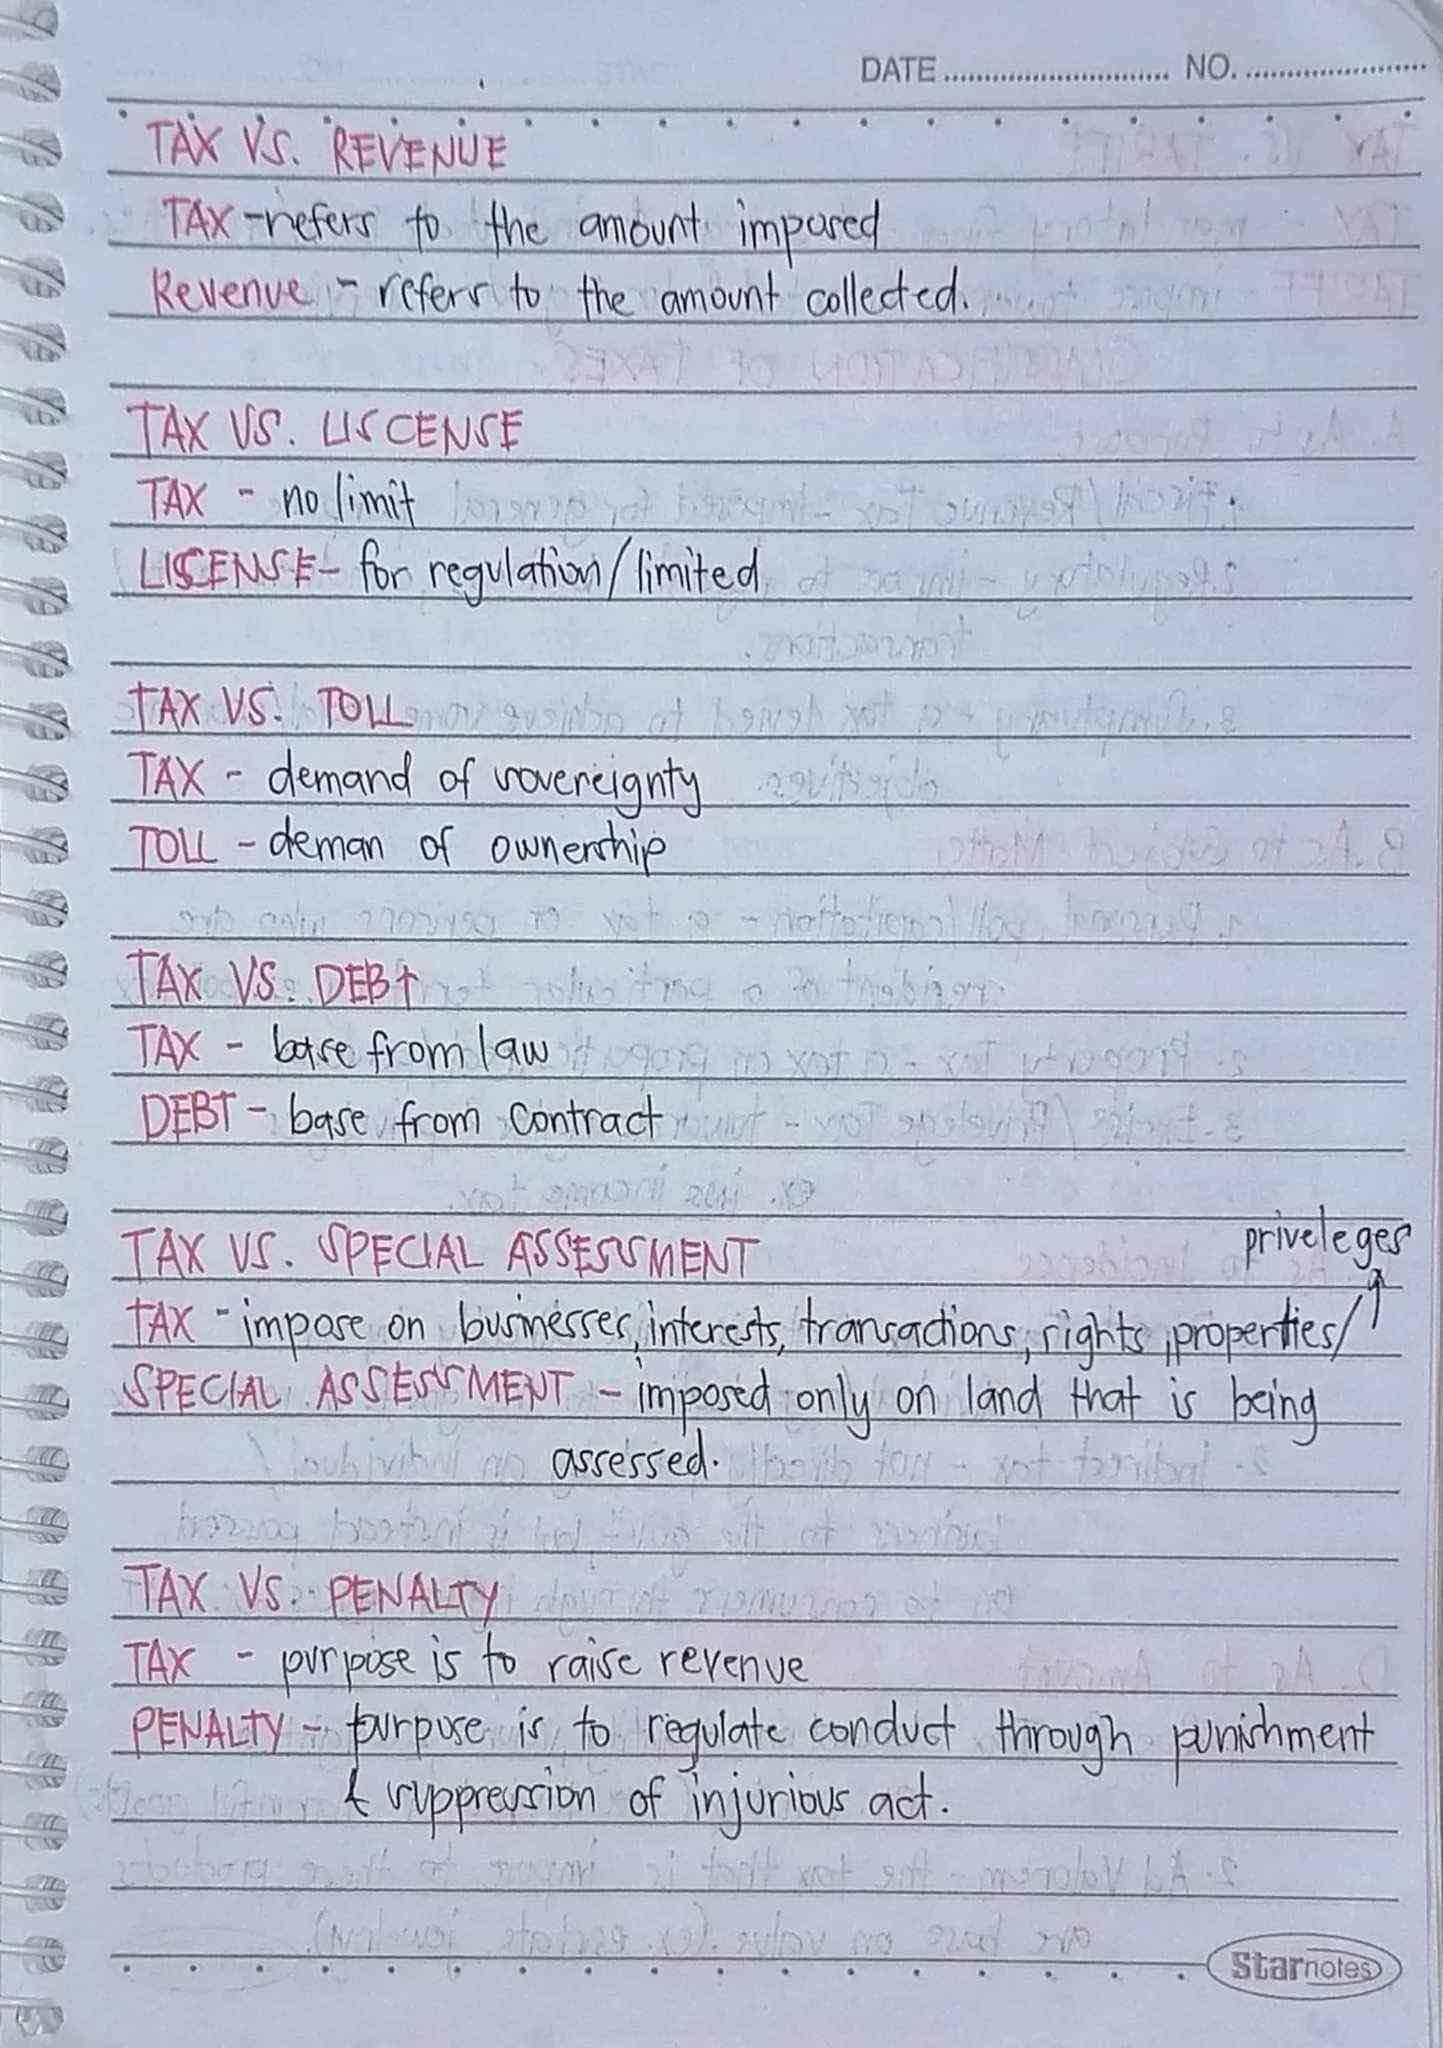 DATE NO.
TAX VS. REVENUE
TAX - refers to the amount imposed
Revenue - refers to the amount collected.
TAX VS. LISCENSE
TAX - no limit
LISCENSE - for regulation/limited
TAX VS. TOLL
TAX - demand of sovereignty
TOLL - deman of ownership
TAX VS. DEBT
TAX - base from law
DEBT - base from contract
TAX VS. SPECIAL ASSESSMENT
priveleges
TAX - impose on businesses, interests, transactions, rights, properties/
SPECIAL ASSESSMENT - imposed only on land that is being
assessed.
TAX VS. PENALTY
TAX - purpose is to raise revenue
PENALTY - purpose is to regulate conduct through punishment
& suppression of injurious act.
Starnotes